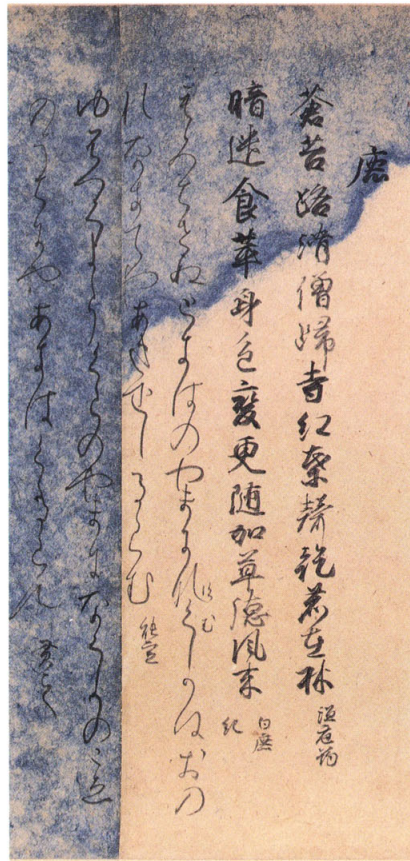 鹿
蒼苔路滑僧歸寺紅葉聲乾鹿在林 温庭筠
暗遣食苹身色變更随加草德風來 白鹿 紀
もみちせぬときはのやまに しかはおの
れなきてやあきをしるらむ 能宣
ゆふつくよをくらのやまになくしかのこゑ
のうちにやあきはくるらん 貫之